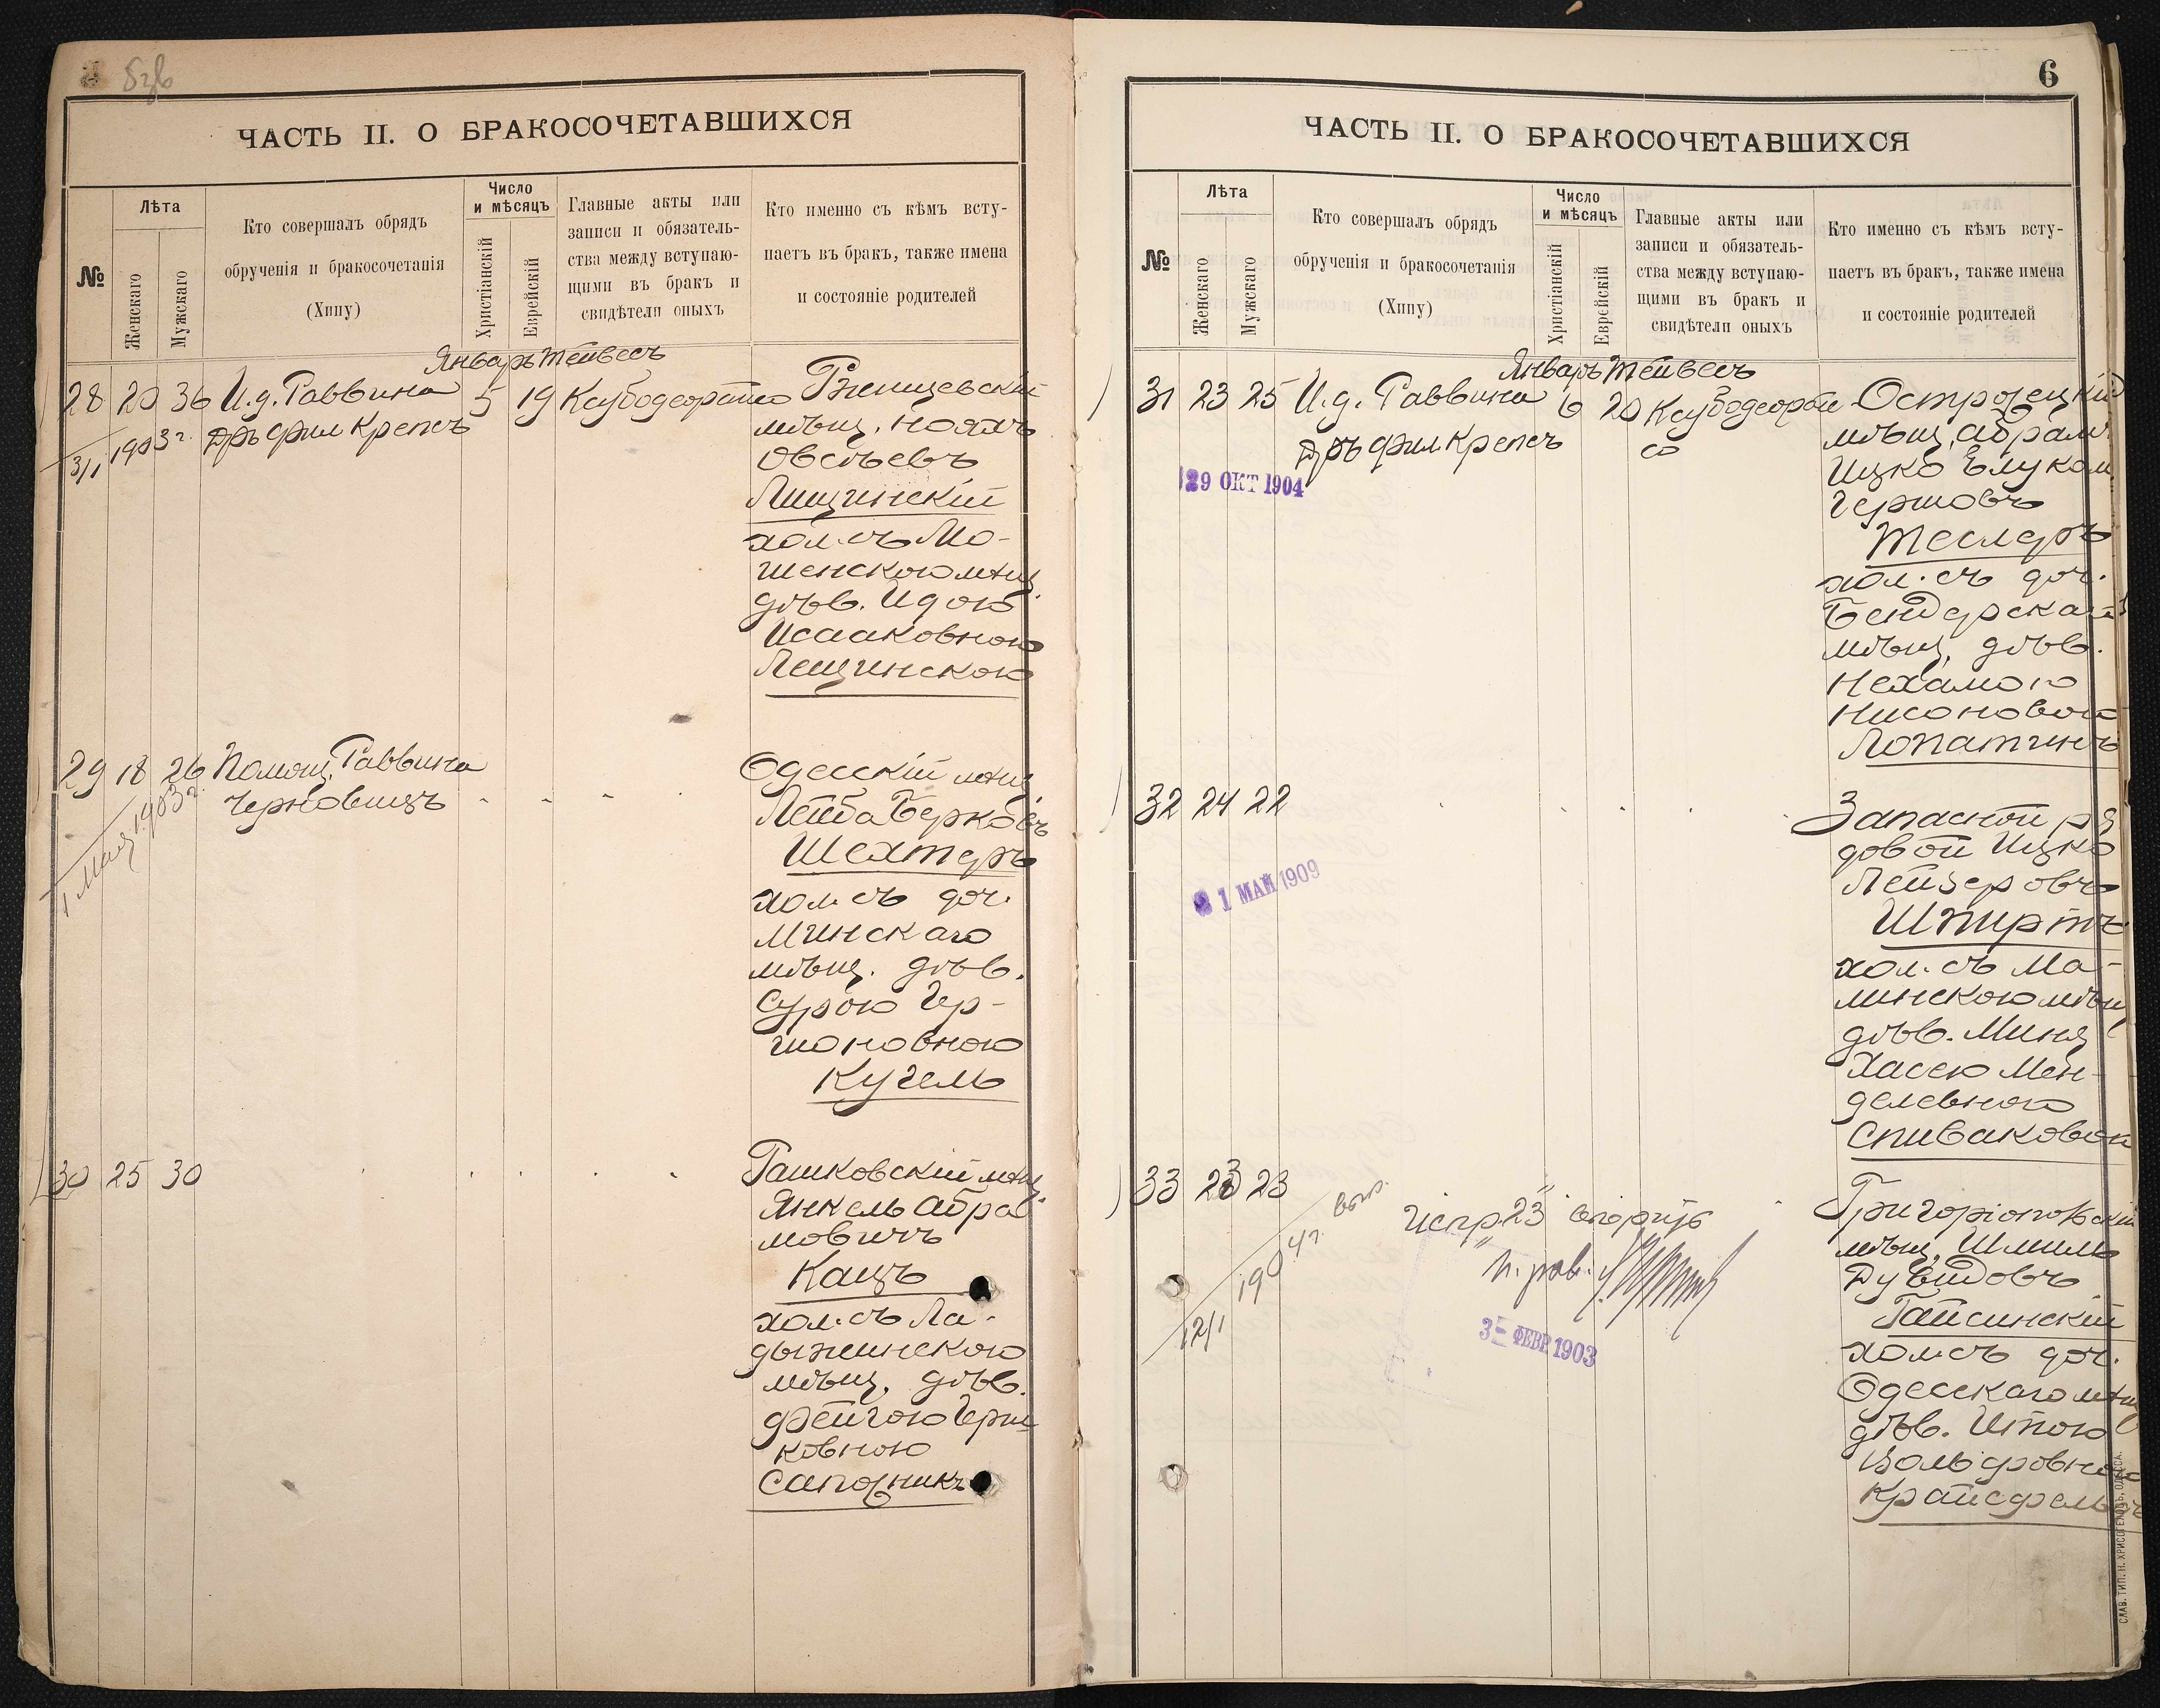 ЧАСТЬ II. О БРАКОСОЧЕТАВШИХСЯ
№
Лѣта
Женскаго
Мужскаго
Кто совершалъ обрядъ
обрученія и бракосочетанія
(Хипу)
Число
и мѣсяцъ
Христіанскій
Еврейскій
Главные акты или
записи и обязатель-
ства между вступаю-
щими въ бракъ и
свидѣтели оныхъ
Кто именно съ кѣмъ всту-
паетъ въ бракъ, также имена
и состояніе родителей
Январь Тейвесъ
28 20 36 И.д. Раввина 5 19
3/I 1903 г. Дръ фил Крепсъ
мѣщ. Нояхъ
Овсѣевъ
Лищинскій
хол. съ Мо-
шенскою мѣщ.
дѣв. Идою
Исааковною
Лещинскою
29 18 26 Помощ. Раввина
Черновицъ
1 Мая 1903 г.
Одесскій мѣщ.
Лейба Берковъ
Шехтеръ
хол. съ доч.
Минскаго
мѣщ. дѣв.
Сурою Гер-
шоновною
Кугель
30 25 30
Рашковскій мѣщ.
Янкель Абра-
мовичъ
Кацъ
хол. съ Ла-
дыжинскою
мѣщ. дѣв.
Фейгою Герш-
ковною
Сапожникъ
6
ЧАСТЬ II. О БРАКОСОЧЕТАВШИХСЯ
№
Лѣта
Женскаго
Мужскаго
Кто совершалъ обрядъ
обрученія и бракосочетанія
(Хипу)
Число
и мѣсяцъ
Христіанскій
Еврейскій
Главные акты или
записи и обязатель-
ства между вступаю-
щими въ бракъ и
свидѣтели оныхъ
Кто именно съ кѣмъ всту-
паетъ въ бракъ, также имена
и состояніе родителей
Январь Тейвесъ
31 23 25 И.д. Раввина 6 20
Дръ фил. Крепсъ
29 ОКТ 1904
Острожецкій
мѣщ. Абрамъ
Ицко
Гершовъ
Теслеръ
хол. съ доч.
Бендерскаго
мѣщ. дѣв.
Нехамою
Нисоновою
Лопатинъ
32 24 22
21 МАЙ 1909
Запасной ря
довой Ицко
Лейзеровъ
Шпиртъ
хол. съ Ма-
линскою мѣщ
дѣв. Миня
Хасею Мен-
делевною
Спиваковой
33 23 23
12/I 1904 г.
Испр. "23" вѣрно
3 ФЕВР 1903
Григоріопольскій
мѣщ. Шмиль
Дувидовъ
Гайсинскій
хол. съ доч.
Одесскаго мѣщ
дѣв. Итою
Вольфовною
СЛАВ. ТИП. Н. ХРИСОГЕЛОСЪ, ОДЕССА.